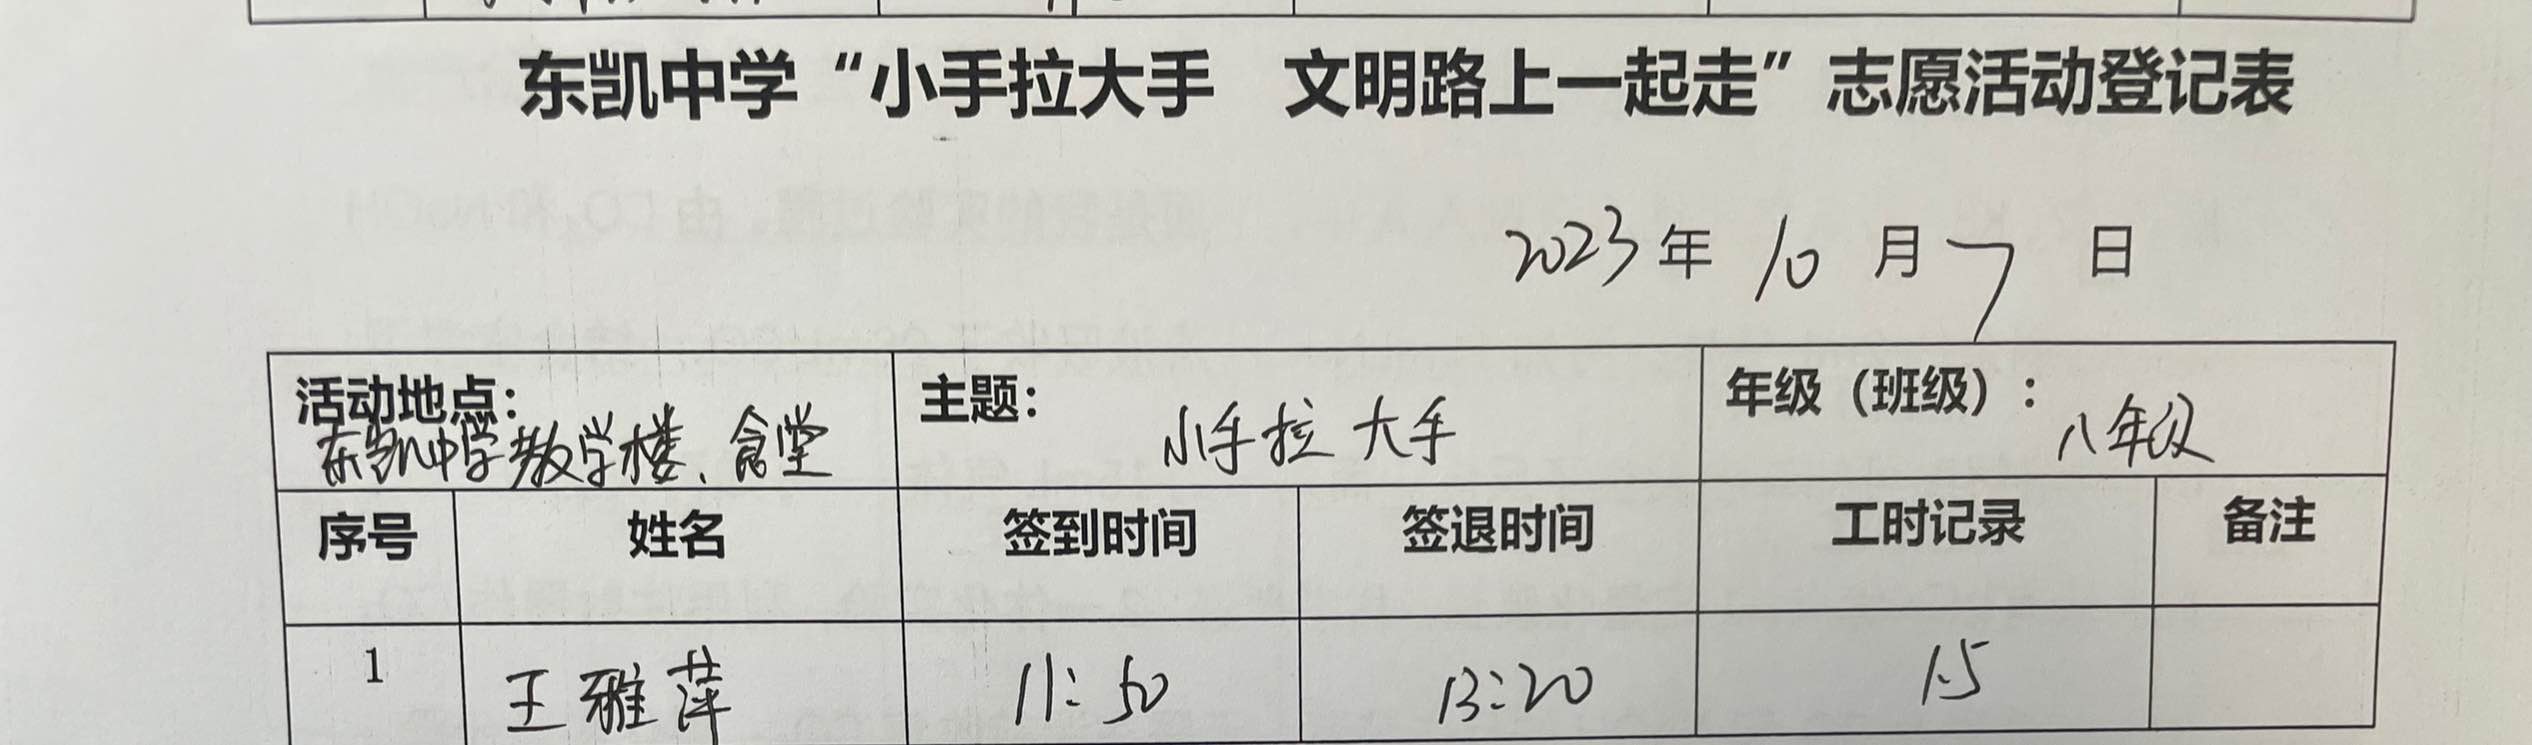 东凯中学“小手拉大手 文明路上一起走”志愿活动登记表
2023年 10 月 7 日
活动地点： 主题： 小手拉大手 年级（班级）： 八年级
东凯中学教学楼、食堂
序号 姓名 签到时间 签退时间 工时记录 备注
1 王雅萍 11:50 13:20 1.5